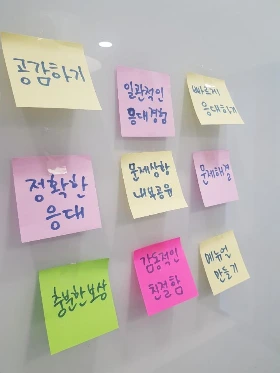 공감하기
일관적인
응대경험
빠르게
응대하기
정확한
응대
문제상황
내부공유
문제해결
충분한 보상
감동적인
친절함
메뉴얼
만들기